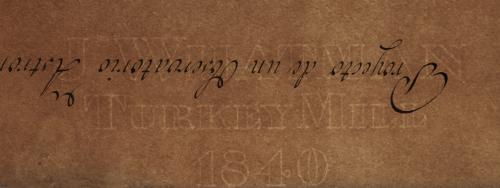 J WHATMAN
Proyecto de un Observatorio Astron
TURKEY MILL
1840